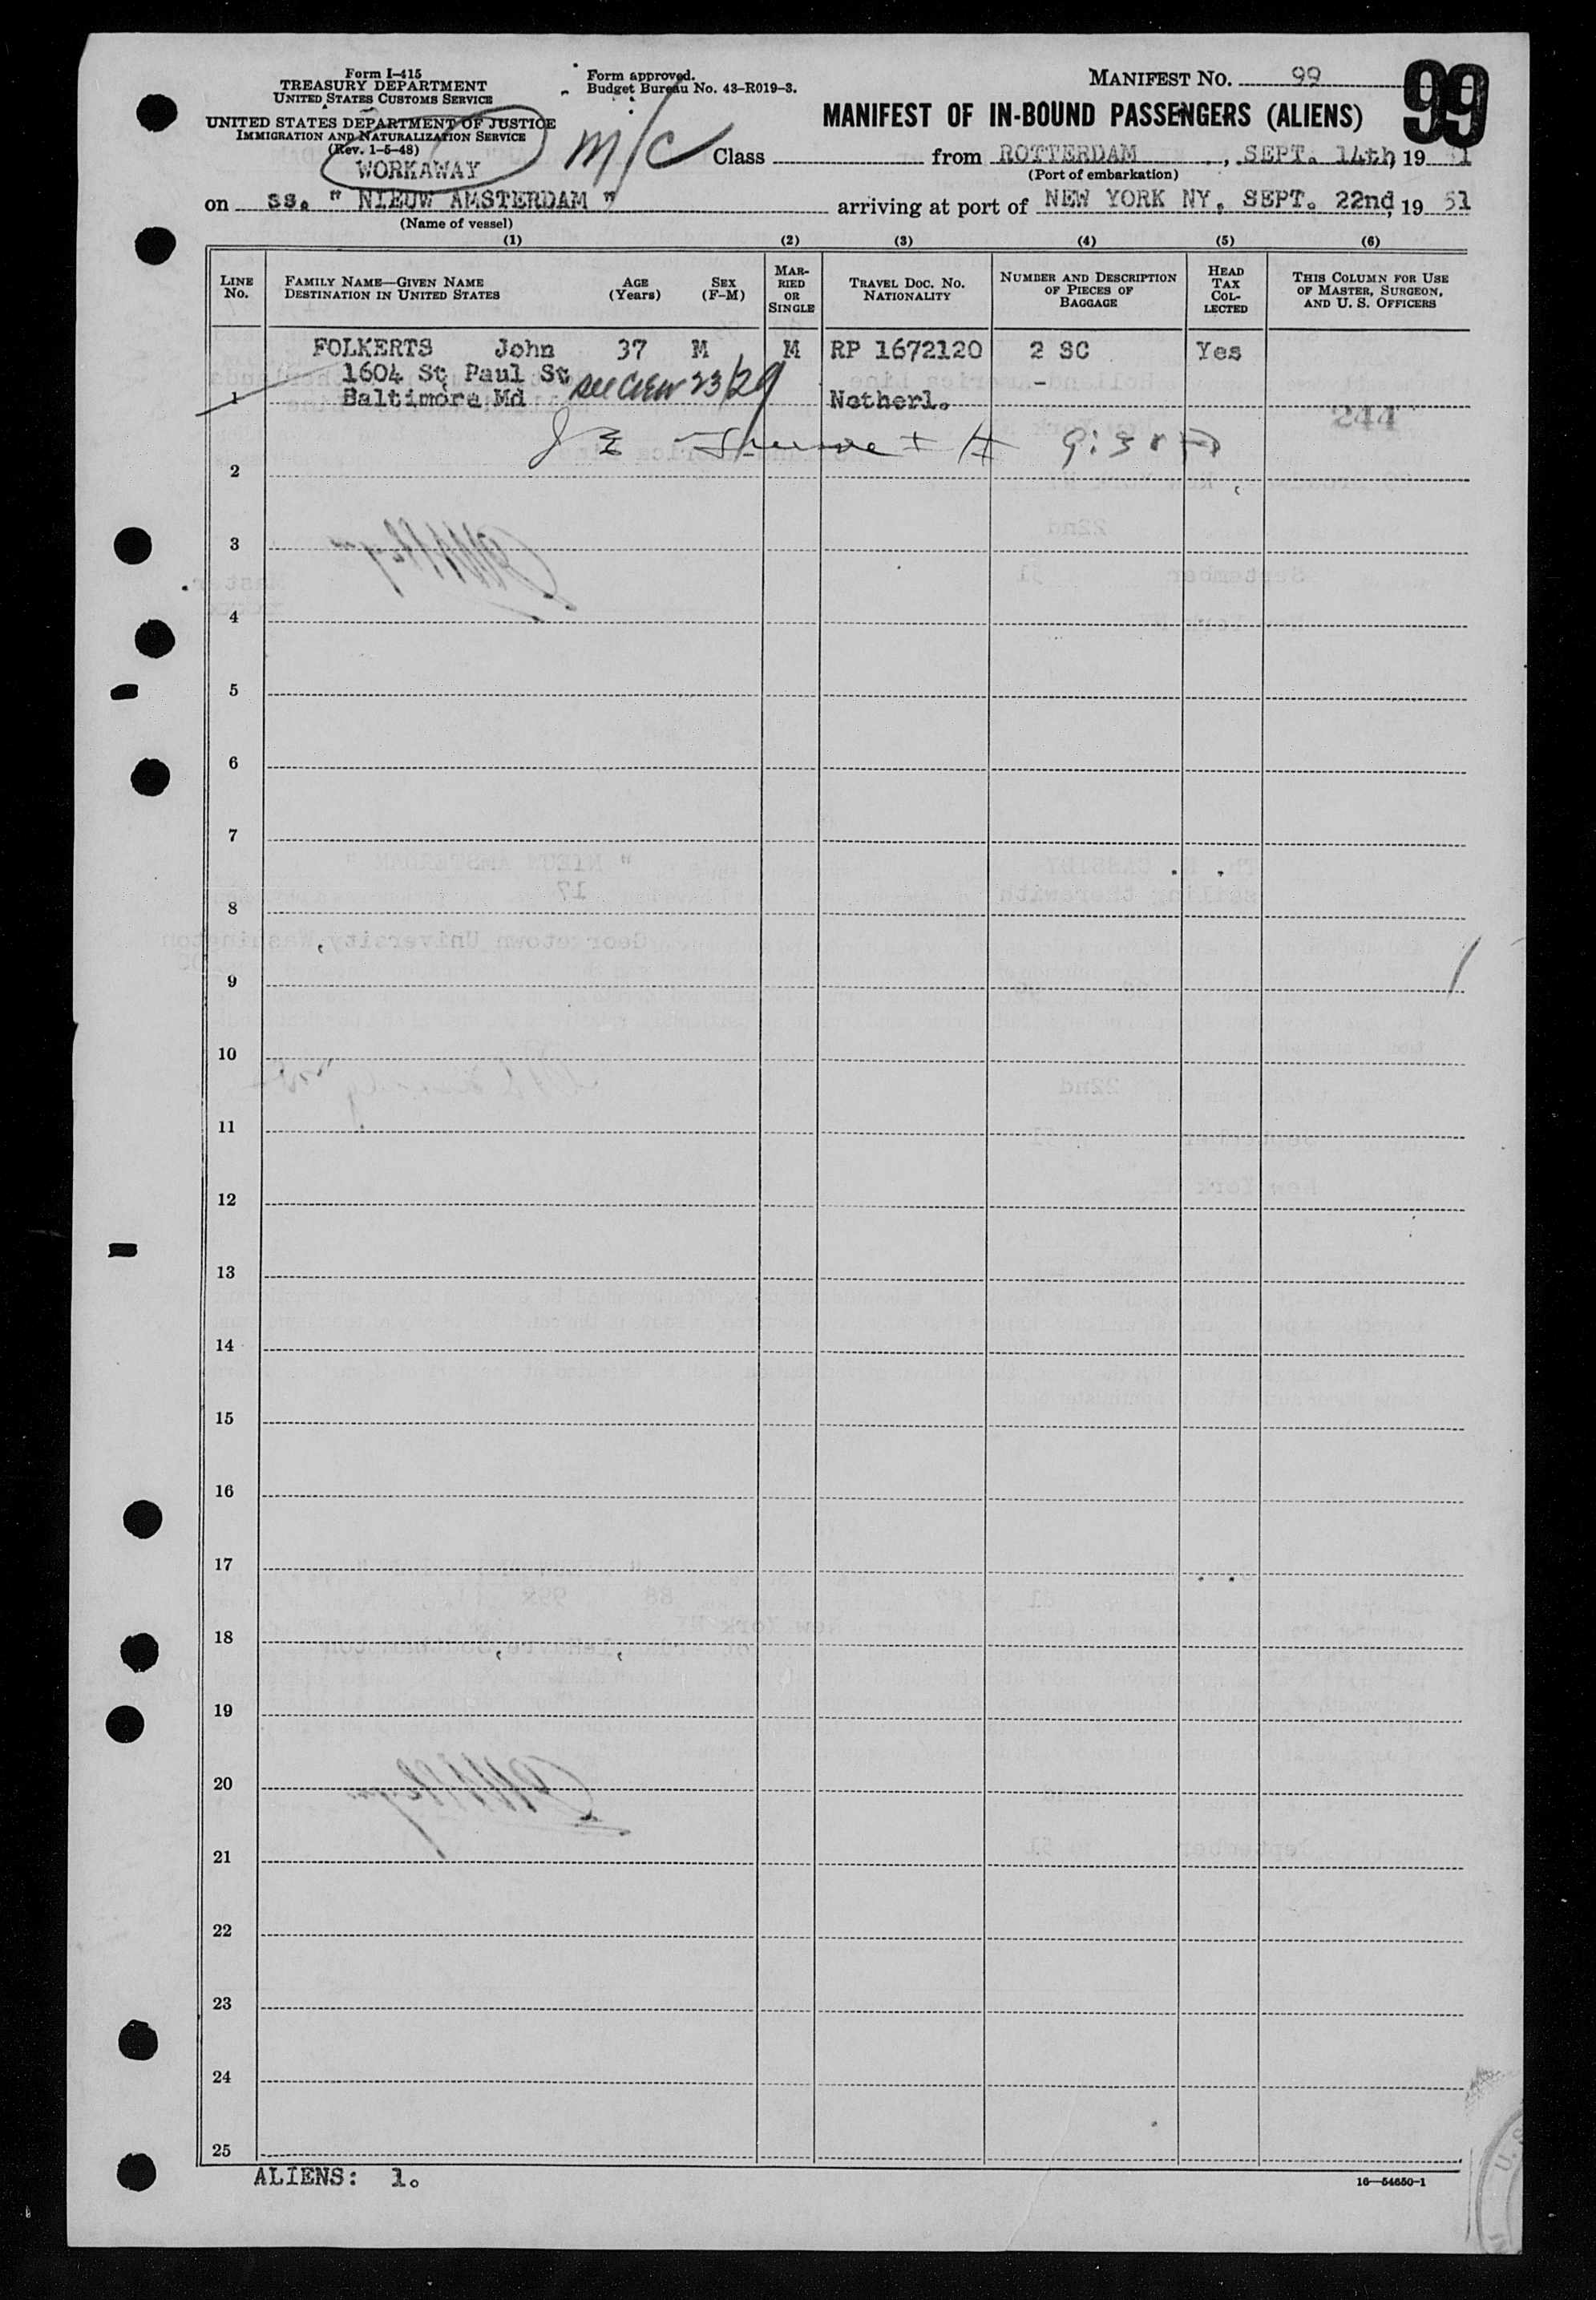 Form I-415
TREASURY DEPARTMENT
UNITED STATES CUSTOMS SERVICE
UNITED STATES DEPARTMENT OF JUSTICE
IMMIGRATION AND NATURALIZATION SERVICE
(Rev. 1-5-48)
WORKAWAY
Form approved.
Budget Bureau No. 43-R019-3.
MANIFEST NO. 99
99
MANIFEST OF IN-BOUND PASSENGERS (ALIENS)
M/C Class from ROTTERDAM, SEPT. 14th, 19 51
(Port of embarkation)
on ss. " NIEUW AMSTERDAM " arriving at port of NEW YORK NY, SEPT. 22nd, 19 51
(Name of vessel)
(1) (2) (3) (4) (5) (6)
LINE No. FAMILY NAME—GIVEN NAME DESTINATION IN UNITED STATES AGE (Years) SEX (F-M) MARRIED OR SINGLE TRAVEL DOC. NO. NATIONALITY NUMBER AND DESCRIPTION OF PIECES OF BAGGAGE HEAD TAX COLLECTED THIS COLUMN FOR USE OF MASTER, SURGEON, AND U. S. OFFICERS
FOLKERTS John 37 M M RP 1672120 2 SC Yes
1604 St Paul St see CREW 23/29 -
1 Baltimore Md Netherl. 244
2
3
4
5
6
7
8
9
10
11
12
13
14
15
16
17
18
19
20
21
22
23
24
25
ALIENS: 1.
16—54650-1